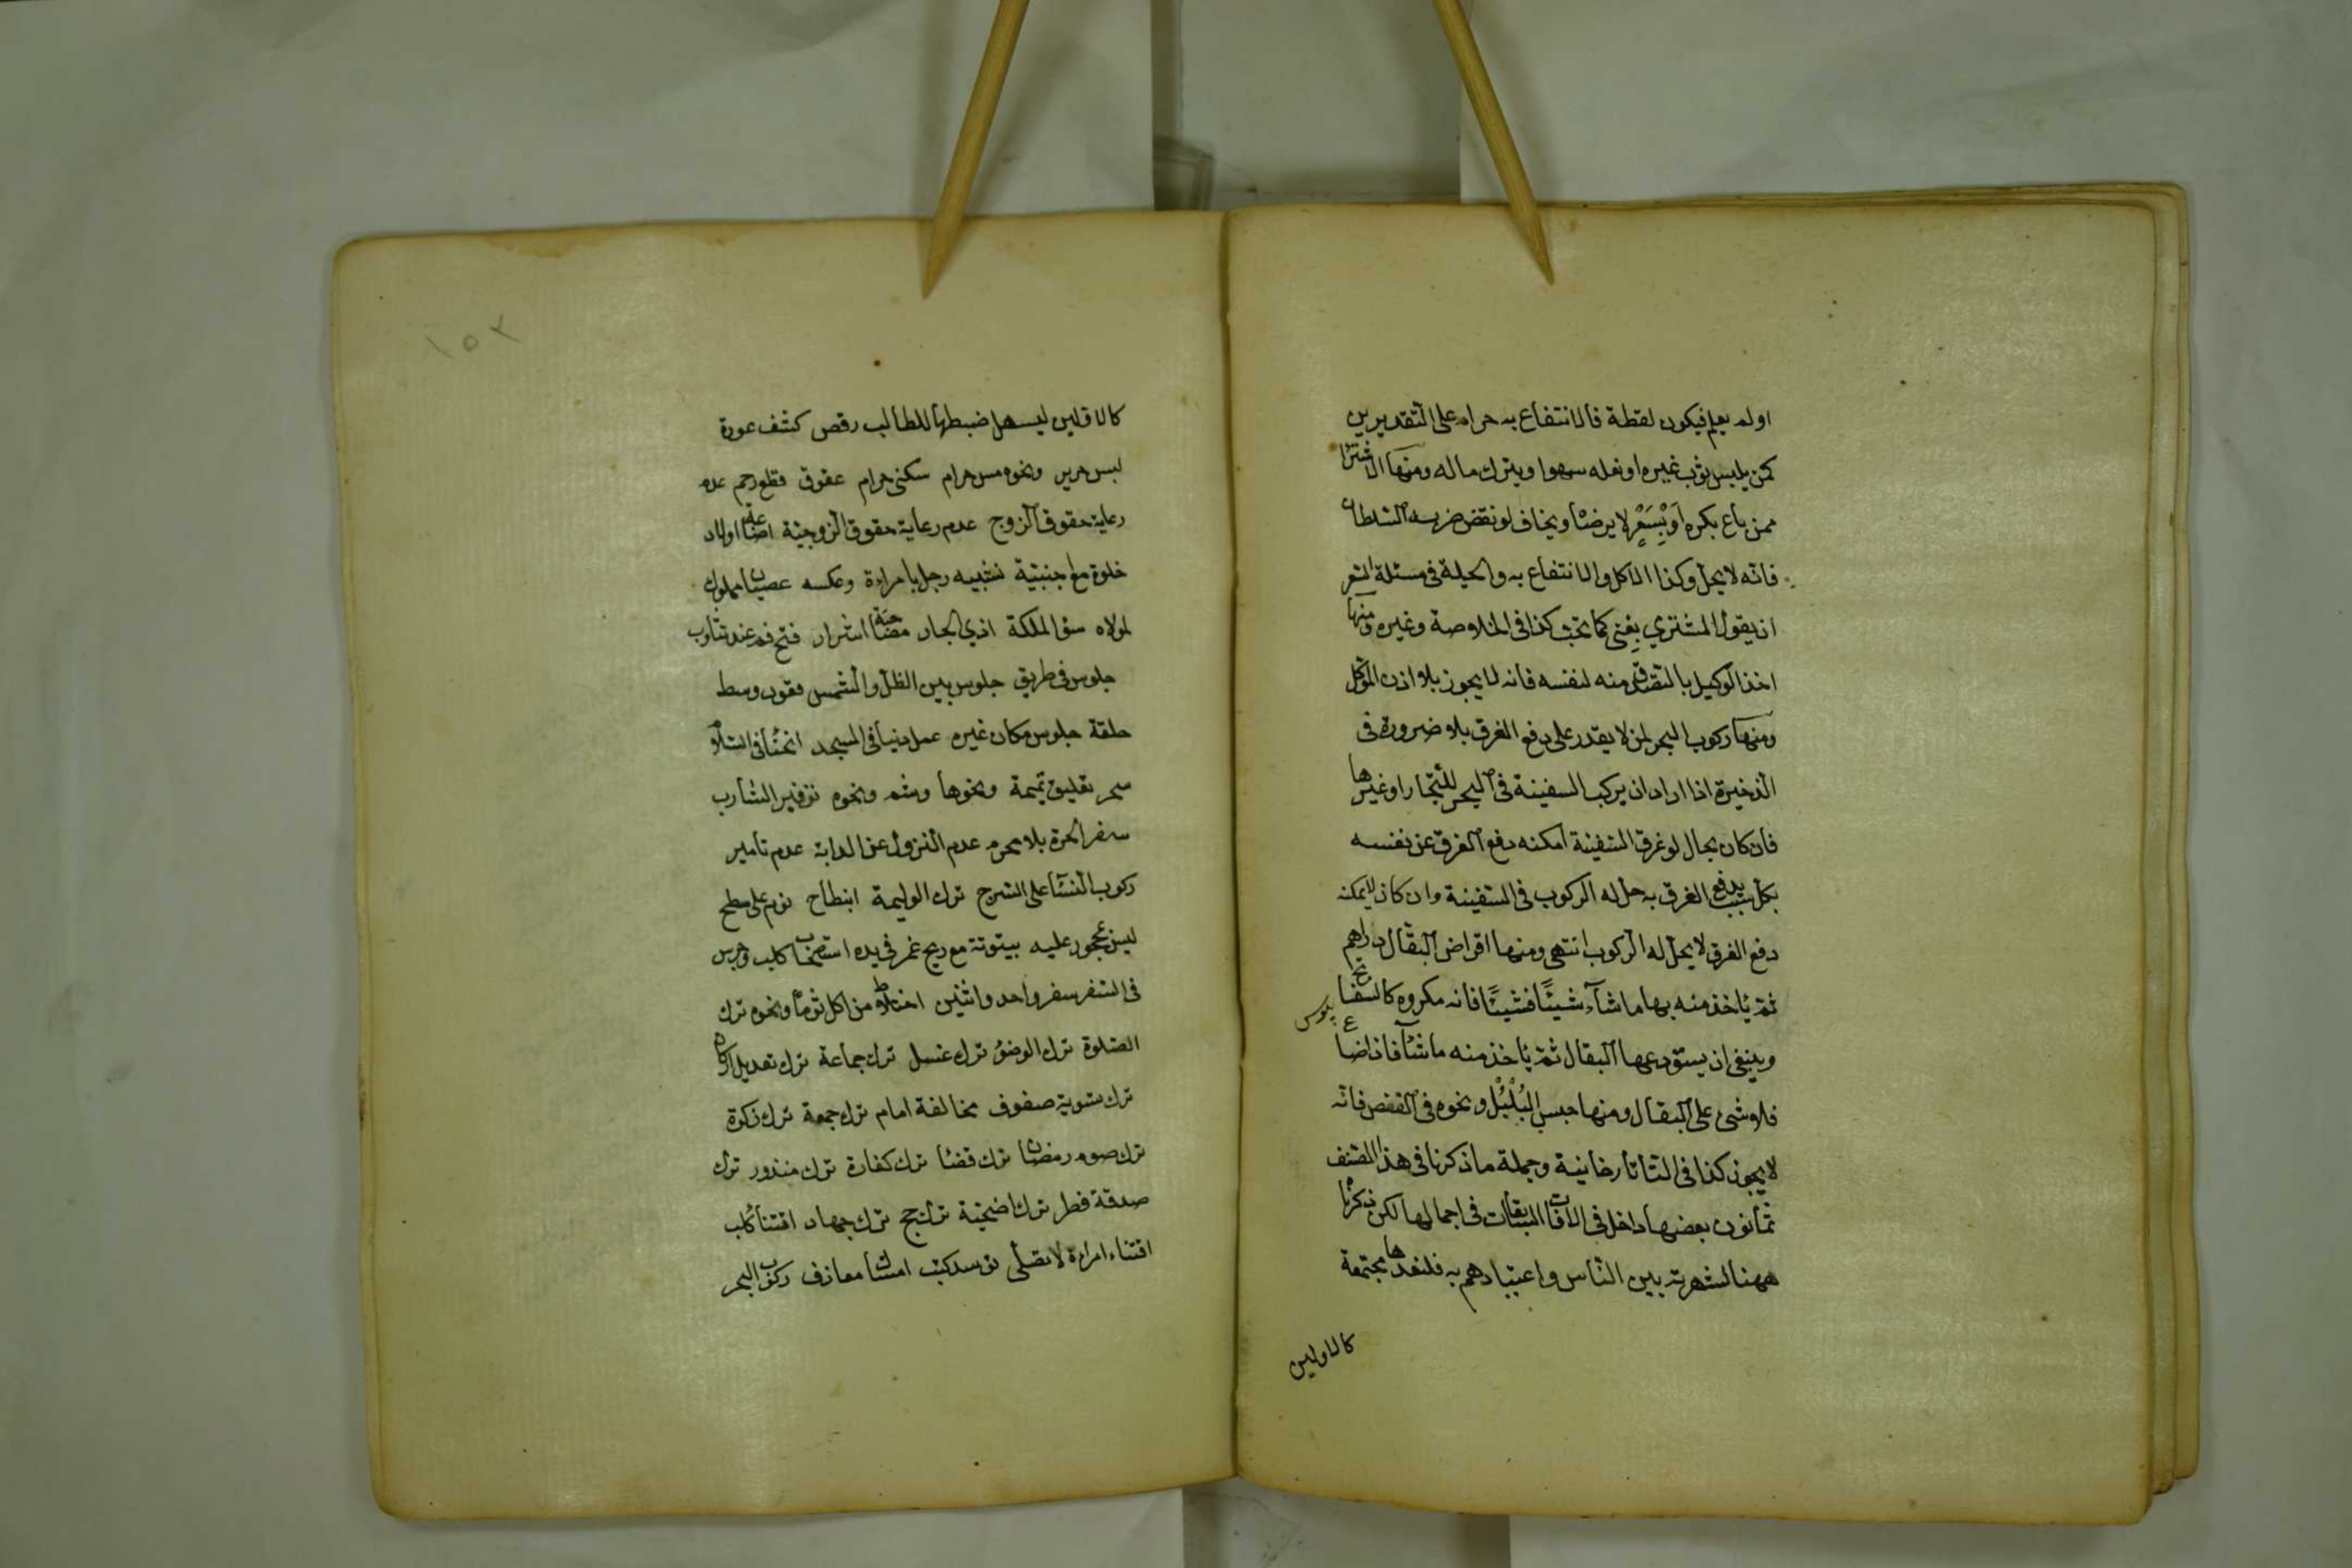 او لم يعلم فيكون لقطة فالانتفاع به حرام على التقديرين
كمن يلبس ثوب غيره او نعله سهوا ويترك ماله ومنها الاشترا
ممن باع بكره او بسعر لا يرضا ويخاف لو نقض ضربه السلطان
فانه لا يحل وكذا الاكل والانتفاع به والحيلة في مسئلة السعر
ان يقول المشتري بعني كما تحب كذا في الخلاصة وغيره ومنها
اخذ الوكيل بالتصدق منه لنفسه فانه لا يجوز بلا اذن الموكل
ومنها ركوب البحر لمن لا يقدر على دفع الغرق بلا ضرورة في
الذخيرة اذا اراد ان يركب السفينة في البحر للتجار او غيرها
فان كان بحال لو غرق السفينة امكنه دفع الغرق عن نفسه
بكل سبب يدفع الغرق به حل له الركوب في السفينة وان كان لا يمكنه
دفع الغرق لا يحل له الركوب انتهى ومنها اقراض البقال دراهم
ثم ياخذ منه بها ما شآء شيئًا فشيئًا فانه مكروه كالسفاتج
وينبغي ان يستودعها البقال ثم ياخذ منه ما شآ فاذا ضاع
فلا شئ على البقال ومنها حبس البُلْبُل ونحوه في القفص فانه
لا يجوز كذا في التاتارخانية وجملة ما ذكرنا في هذا المصنف
ثمانون بعضها داخل في الافات السابقات في اجمالها لكن ذكرنا
ههنا لشهرته بين الناس واعتيادهم به فلنعدها مجتمعة
كالاولين
١٥٢
كالاولين ليسهل ضبطها للطالب رقص كشف عورة
لبس حرير ونحوه مس حرام سكنى حرام عقوق قطع رحم عدم
رعاية حقوق الزوج عدم رعاية حقوق الزوجية اضاعة اولاد
خلوة مع اجنبية تشبيه رجل بامراءة وعكسه عصيان مملوك
لمولاه سؤ الملكة اذي الجار مصاحبة اشرار فتح فم عند تثاوب
جلوس في طريق جلوس بين الظل والشمس قعود وسط
حلقة جلوس مكان غيره عمل دنيا في المسجد انحنا في السلام
سحر تعليق تميمة ونحوها وشم ونحوه توفير الشارب
سفر الحرة بلا محرم عدم النزول عن الدابة عدم تامير
ركوب النسآ على السرج ترك الوليمة انبطاح نوم على سطح
ليس بمحجور عليه بيتوتة مع ريح غمر في يده استصحاب كلب وجرس
في السفر سفر واحد واثنين اختلاط من اكل ثوما ونحوه ترك
الصلوة ترك الوضوء ترك غسل ترك جماعة ترك تعديل اركان
ترك تسوية صفوف مخالفة امام ترك جمعة ترك زكوة
ترك صوم رمضان ترك قضا ترك كفارة ترك منذور ترك
صدقة فطر ترك اضحية ترك حج ترك جهاد اقتنا كلب
اقتناء امراءة لا تصلي توسد كتب امساك معازف ركوب البحر